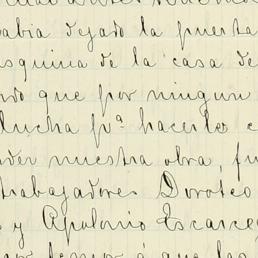 abia dejado la puerta
squina de la casa de
que por ningun
lucha pª hacerlo
der nuestra obra, fu
trabajadores Doroteo
y Apolonio Escarce
temor á que los